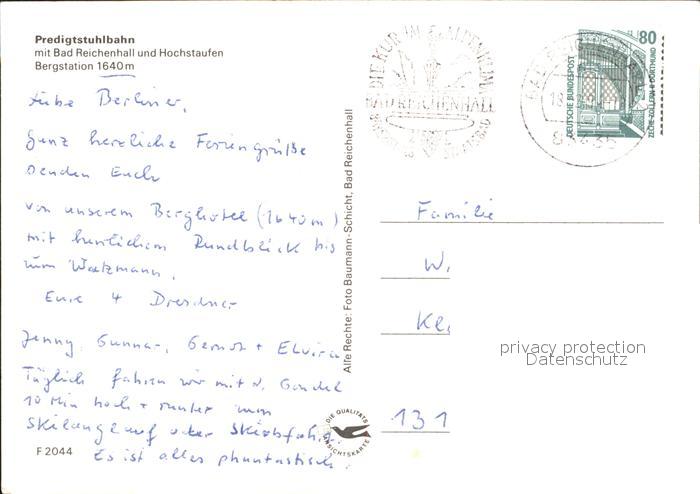 Predigtstuhlbahn
mit Bad Reichenhall und Hochstaufen
Bergstation 1640 m
Liebe Berliner,
Ganz herzliche Feriengrüße
senden Euch
von unserem Berghotel (1640 m)
mit herrlichem Rundblick bis
zum Watzmann.
Eure 4 Dresdner
Jenny, Gunnar, Gernot + Elvira
Täglich fahren wir mit d. Gondel
10 Min hoch + runter zum
Skilanglauf oder Skiabfahrt.
Es ist alles phantastisch.
F 2044
Alle Rechte: Foto Baumann-Schicht, Bad Reichenhall
DIE QUALITÄTS
ANSICHTSKARTE
BAD REICHENHALL
DEUTSCHE BUNDESPOST
80
ZECHE ZOLLERN II DORTMUND
Familie
W.
Ke.
131
privacy protection
Datenschutz